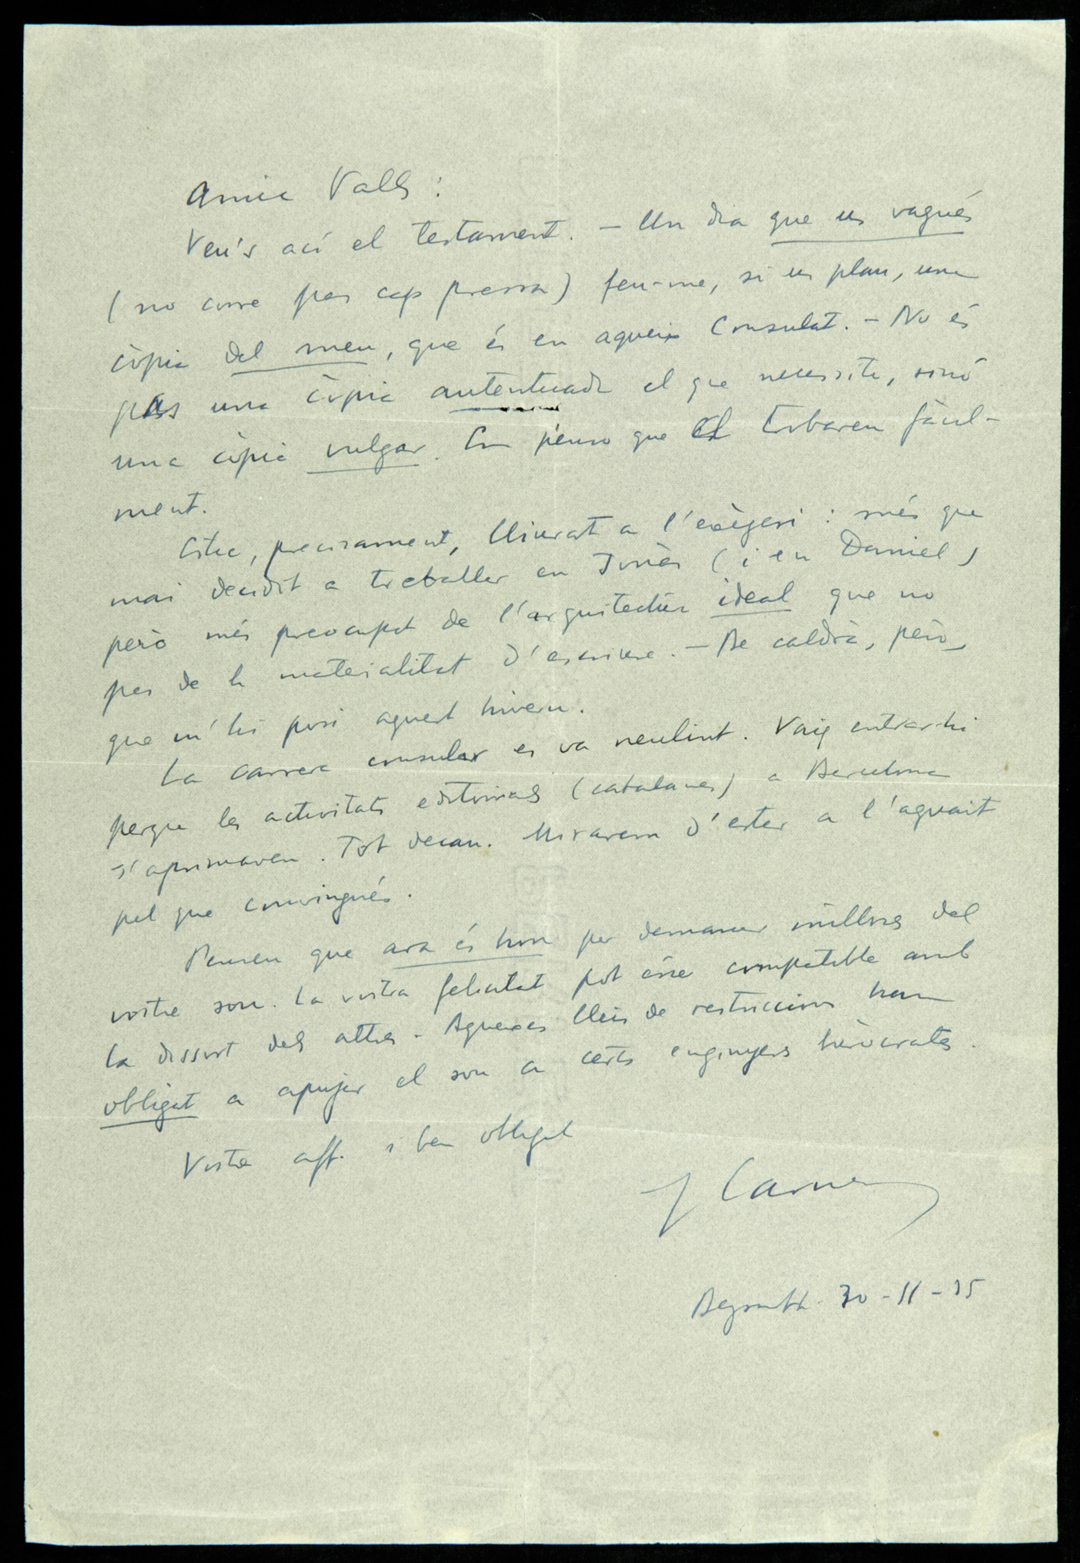 Amic Valls :
Veu's ací el testament. – Un dia que us vagués
(no corre pas cap pressa) feu-me, si us plau, una
còpia del meu, que és en aqueix Consulat. – No és
pas una còpia autenticada el que necessito, sinó
una còpia vulgar. Em penso que el trobareu fàcil-
ment.
Estic, precisament, lliurat a l'exègesi : més que
mai decidit a treballar en Jonàs (i en Daniel)
però més preocupat de l'arquitectura ideal que no
pas de la materialitat d'escriure. – Be caldrà, però,
que m'hi posi aquest hivern.
La carrera consular es va neulint. Vaig entrar-hi
perque les activitats editorials (catalanes) a Barcelona
s'aprimaven. Tot decau. Mirarem d'estar a l'aguait
pel que convingués.
Penseu que ara és hora per demanar millores del
vostre sou. La vostra felicitat pot ésse compatible amb
la dissort dels altres. Aqueixes lleis de restriccions han
obligat a apujar el sou a certs enginyers buròcrates.
Vostre aff. i ben obligat
J Carner
Beyrouth 30-11-35